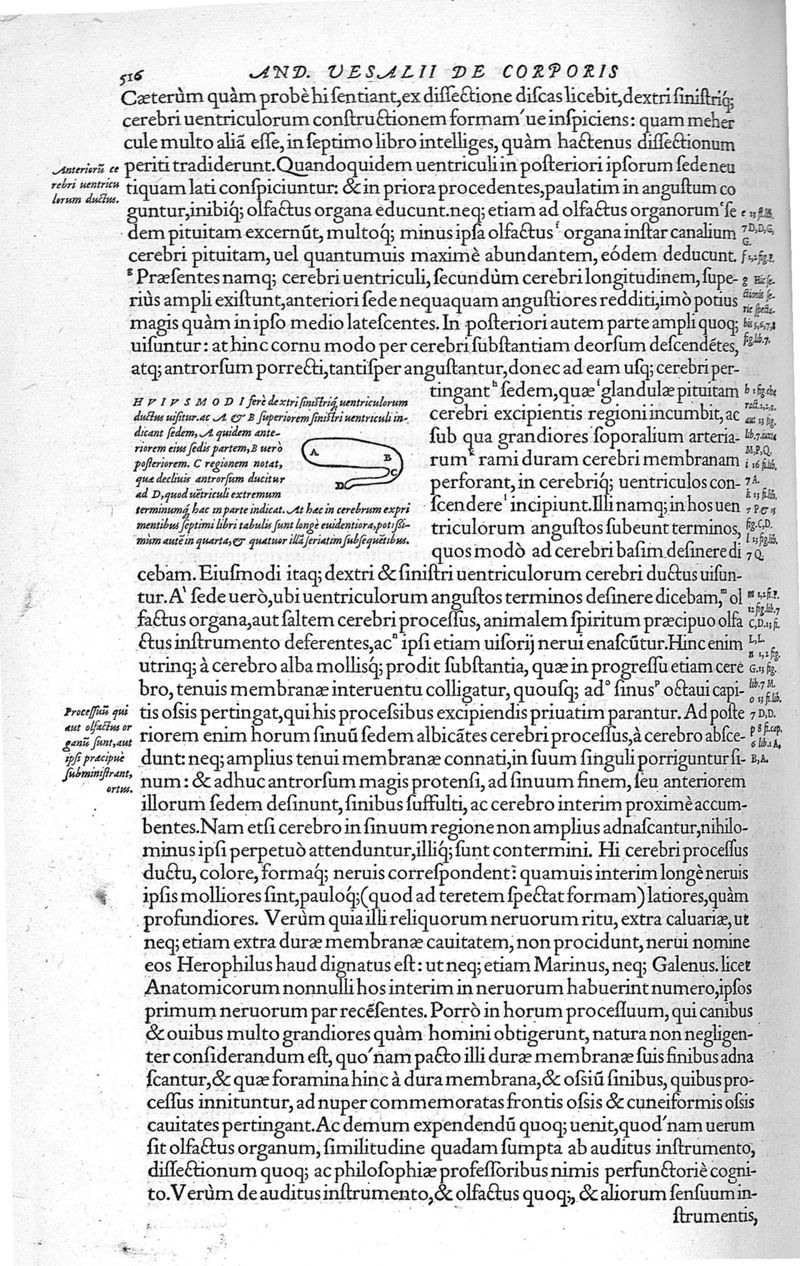 516
AND. VESALII DE CORPORIS
Cæterùm quàm probè hi sentiant, ex dissectione discas licebit, dextri sinistriq́;
cerebri uentriculorum constructionem formam'ue inspiciens: quam meher
cule multo aliã esse, in septimo libro intelliges, quàm hactenus dissectionum
periti tradiderunt. Quandoquidem uentriculi in posteriori ipsorum sede neu
tiquam lati conspiciuntur: & in priora procedentes, paulatim in angustum co
guntur, inibiq́; olfactus organa educunt. neq; etiam ad olfactus organorum e se
dem pituitam excernũt, multoq́; minus ipsa olfactus f organa instar canalium
cerebri pituitam, uel quantumuis maximè abundantem, eódem deducunt.
g Præsentes namq; cerebri uentriculi, secundùm cerebri longitudinem, supe-
riùs ampli existunt, anteriori sede nequaquam angustiores redditi, imò potius
magis quàm in ipso medio latescentes. In posteriori autem parte ampli quoq;
uisuntur: at hinc cornu modo per cerebri substantiam deorsum descendẽtes,
atq; antrorsum porrecti, tantisper angustantur, donec ad eam usq; cerebri per-
tingant h sedem, quæ i glandulæ pituitam
cerebri excipientis regioni incumbit, ac
sub qua grandiores soporalium arteria-
rum k rami duram cerebri membranam
perforant, in cerebriq́; uentriculos con-
scendere l incipiunt. Illi namq; in hos uen
triculorum angustos subeunt terminos,
quos modò ad cerebri basim desinere di
cebam. Eiusmodi itaq; dextri & sinistri uentriculorum cerebri ductus uisun-
tur. A' sede uerò, ubi uentriculorum angustos terminos desinere dicebam, m ol
factus organa, aut saltem cerebri processus, animalem spiritum præcipuo olfa
ctus instrumento deferentes, ac n ipsi etiam uisorij nerui enascũtur. Hinc enim
utrinq; à cerebro alba mollisq́; prodit substantia, quæ in progressu etiam cere
bro, tenuis membranæ interuentu colligatur, quousq; ad o sinus p octaui capi-
tis ossis pertingat, qui his processibus excipiendis priuatim parantur. Ad poste
riorem enim horum sinuũ sedem albicãtes cerebri processus, à cerebro absce-
dunt: neq; amplius tenui membranæ connati, in suum singuli porriguntur si-
num: & adhuc antrorsum magis protensi, ad sinuum finem, seu anteriorem
illorum sedem desinunt, sinibus suffulti, ac cerebro interim proximè accum-
bentes. Nam etsi cerebro in sinuum regione non amplius adnascantur, nihilo-
minus ipsi perpetuò attenduntur, illiq́; sunt contermini. Hi cerebri processus
ductu, colore, formaq́; neruis correspondent: quamuis interim longè neruis
ipsis molliores sint, pauloq́; (quod ad teretem spectat formam) latiores, quàm
profundiores. Verùm quia illi reliquorum neruorum ritu, extra caluariæ, ut
neq; etiam extra duræ membranæ cauitatem, non procidunt, nerui nomine
eos Herophilus haud dignatus est: ut neq; etiam Marinus, neq; Galenus. licet
Anatomicorum nonnulli hos interim in neruorum habuerint numero, ipsos
primum neruorum par recẽsentes. Porrò in horum processuum, qui canibus
& ouibus multo grandiores quàm homini obtigerunt, natura non negligen-
ter considerandum est, quo'nam pacto illi duræ membranæ suis finibus adna
scantur, & quæ foramina hinc à dura membrana, & ossiũ sinibus, quibus pro-
cessus innituntur, ad nuper commemoratas frontis ossis & cuneiformis ossis
cauitates pertingant. Ac demum expendendũ quoq; uenit, quod'nam uerum
sit olfactus organum, similitudine quadam sumpta ab auditus instrumento,
dissectionum quoq; ac philosophiæ professoribus nimis perfunctoriè cogni-
to. Verùm de auditus instrumento, & olfactus quoq;, & aliorum sensuum in-
strumentis,
Anteriorũ ce
rebri uentricu
lorum ductus.
HVIVSMODI ferè dextri sinistriq́; uentriculorum
ductus uisitur. ac A & B superiorem sinistri uentriculi in-
dicant sedem, A quidem ante-
riorem eius sedis partem, B uerò
posteriorem. C regionem notat,
qua decliuis antrorsum ducitur
ad D, quod uẽtriculi extremum
terminumq́; hac in parte indicat. At hæc in cerebrum expri
mentibus septimi libri tabulis sunt longè euidentiora, potissi-
mùm autẽ in quarta, & quatuor illã seriatim subsequẽtibus.
A
B
C
D
Processuũ qui
aut olfactus or
ganũ sunt, aut
ipsi præcipuè
subministrant,
ortus.
e 15 fi. lib.
7 D, D, G,
G.
f 1, 2 fig. P.
g Hic se-
ctionis se-
rie specta-
bis 5, 6, 7, 8
fig. lib. 7.
M, P, Q.
i 16 fi. lib.
7 A.
k 15 fi. lib.
fig. C, D.
l 15 fig. lib.
7 Q.
m 1, 2 fi. P.
12 fig. lib. 7
C, D. 15 fi.
L, L.
n 1, 2 fig.
G. 15 fig.
lib. 7 M.
o 15 fi. lib.
7 D, D.
p 8 fi. cap.
6 lib. 1 A,
B, A.